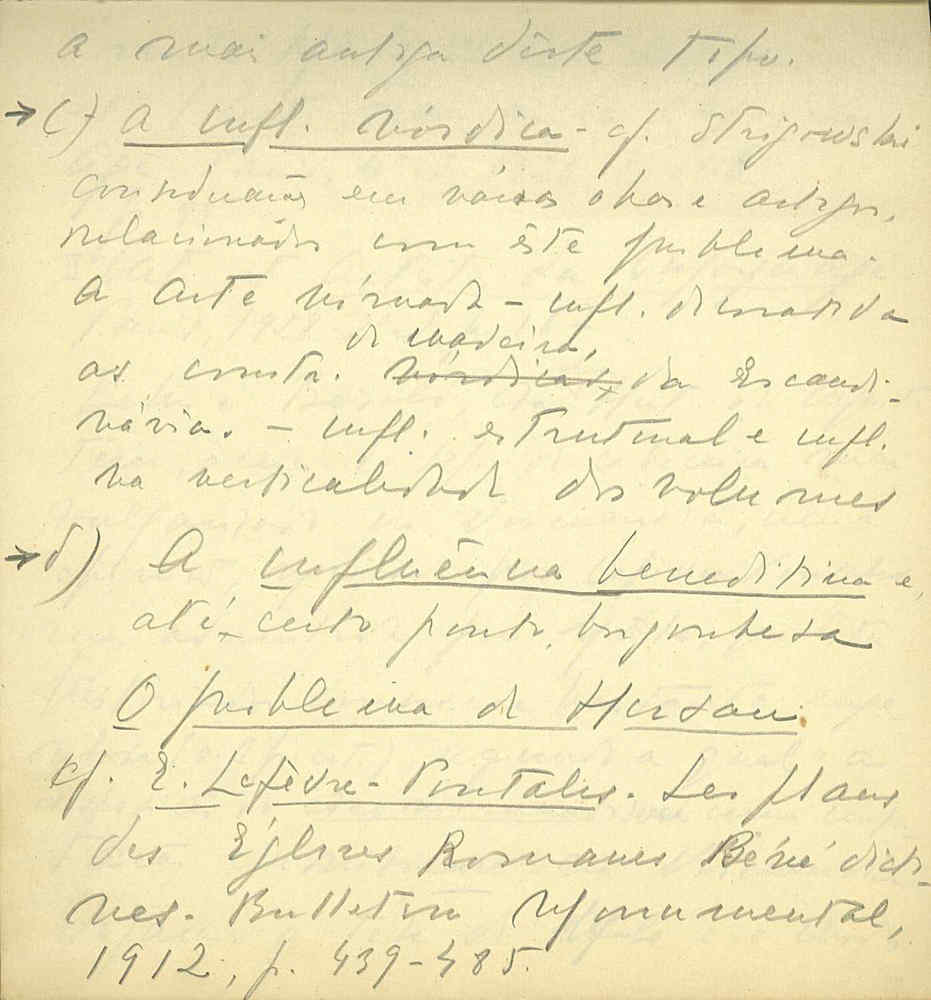 a mais antiga dêste tipo.
→ c) A infl. nórdica - cf. Strzigowski
em várias obras e artigos,
relacionados com êste problema.
A arte normanda - infl. da
de madeira,
as constr. nórdicas da Escandi-
návia. - infl. estrutural e infl.
na verticalidade dos volumes
→ d) A influência beneditina e,
até certo ponto, borgonhesa
O problema de Hirsau.
cf. E. Lefèvre-Pontalis. Les plans
des Églises Romanes Bénédicti-
nes. Bulletin Monumental,
1912, p. 439-485.